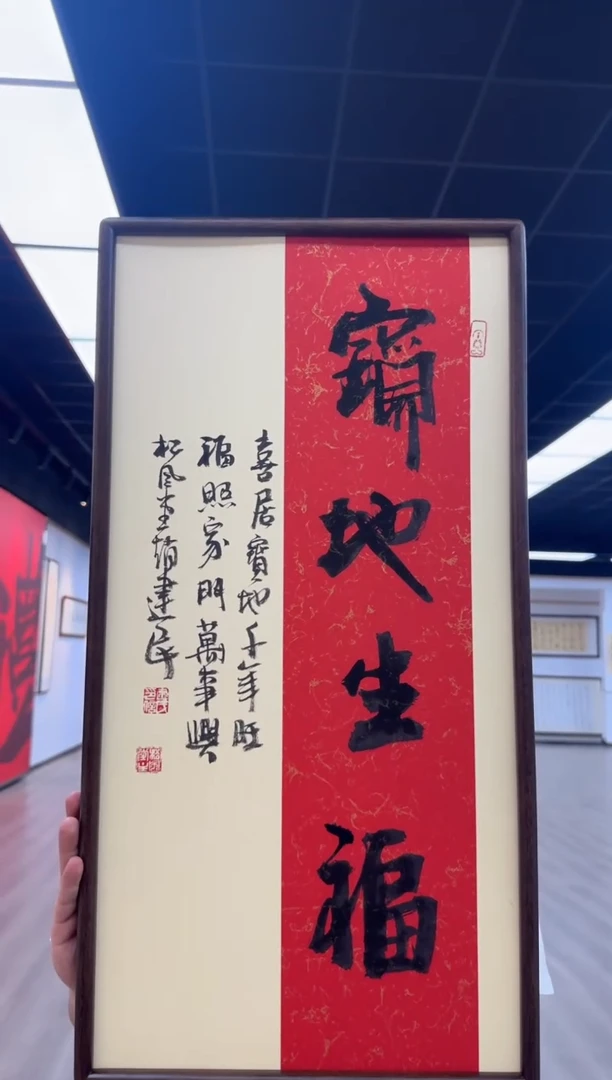 寶地生福
喜居寶地千年旺
福照家門萬事興
松風堂趙建民